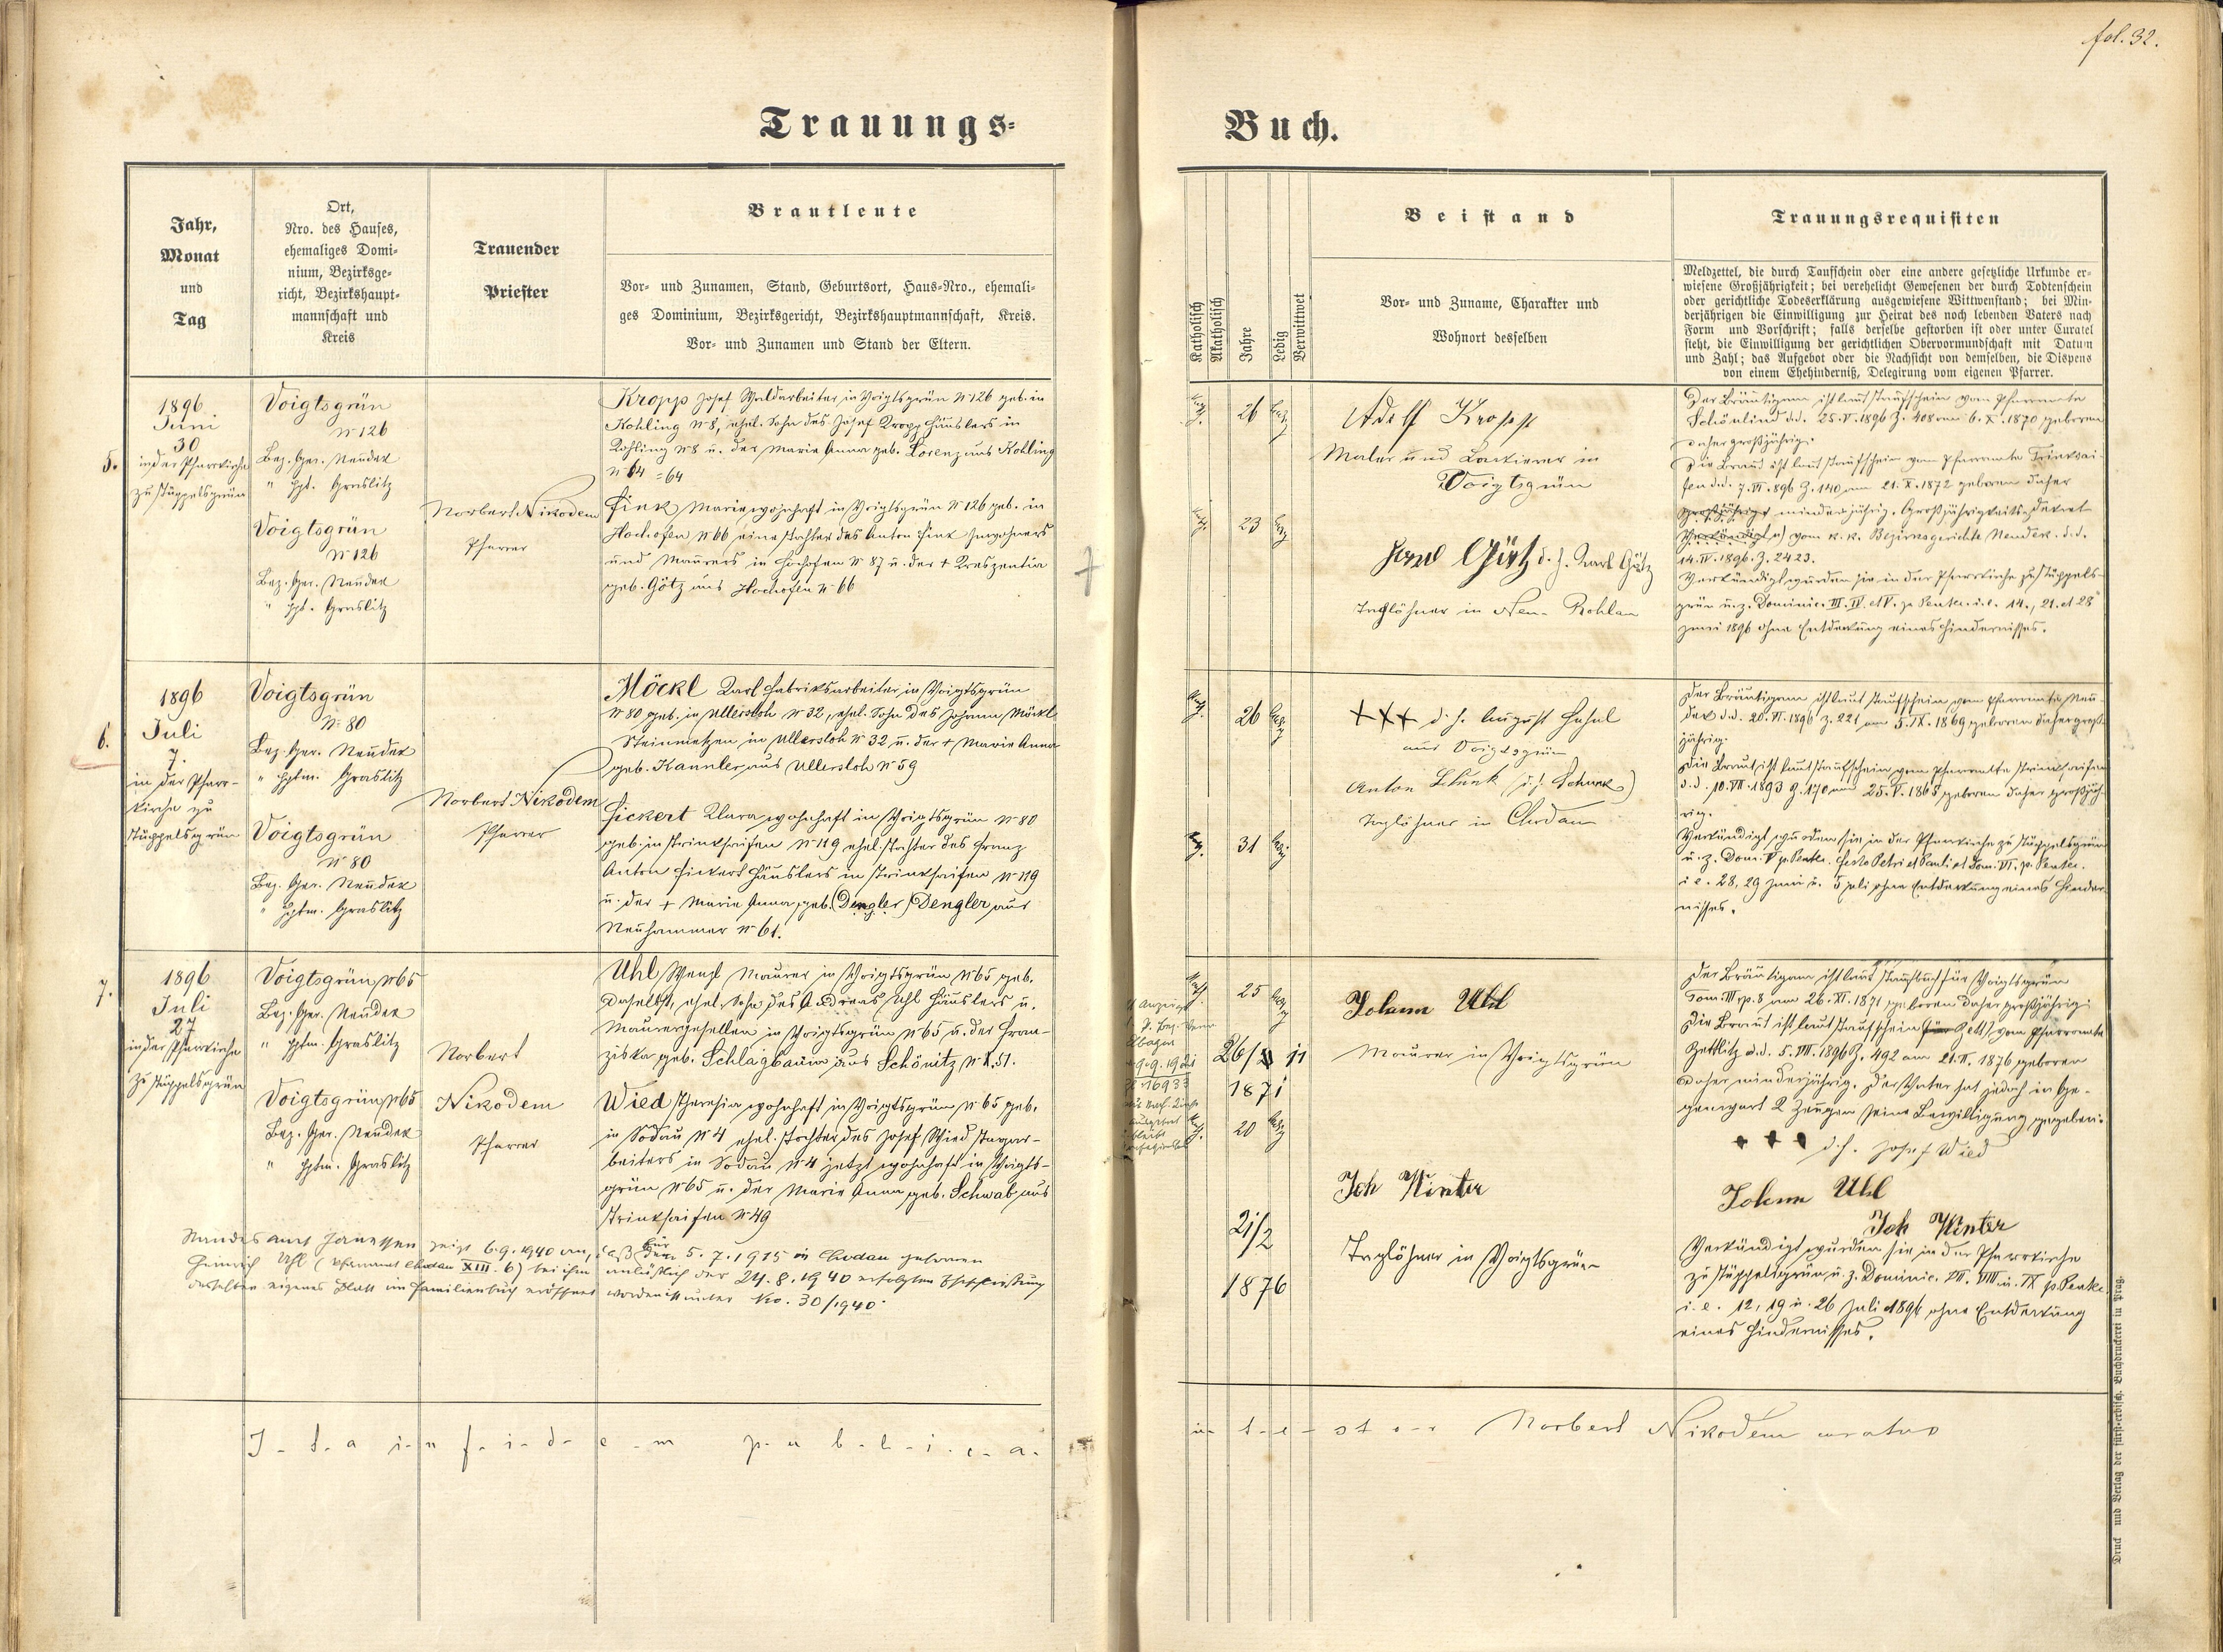 fol. 32.
Trauungs-
Buch.
Jahr,
Monat
und
Tag
Ort,
Nro. des Hauses,
ehemaliges Domi-
nium, Bezirksge-
richt, Bezirkshaupt-
mannschaft und
Kreis
Trauender
Priester
Brautleute
Vor- und Zunamen, Stand, Geburtsort, Haus-Nro., ehemali-
ges Dominium, Bezirksgericht, Bezirkshauptmannschaft, Kreis.
Vor- und Zunamen und Stand der Eltern.
Katholisch
Akatholisch
Jahre
Ledig
Verwittwet
Beistand
Vor- und Zuname, Charakter und
Wohnort desselben
Trauungsrequisiten
Meldzettel, die durch Taufschein oder eine andere gesetzliche Urkunde er-
wiesene Großjährigkeit; bei verehelicht Gewesenen der durch Todtenschein
oder gerichtliche Todeserklärung ausgewiesene Wittwenstand; bei Min-
derjährigen die Einwilligung zur Heirat des noch lebenden Vaters nach
Form und Vorschrift; falls derselbe gestorben ist oder unter Curatel
steht, die Einwilligung der gerichtlichen Obervormundschaft mit Datum
und Zahl; das Aufgebot oder die Nachsicht von demselben, die Dispens
von einem Ehehinderniß, Delegirung vom eigenen Pfarrer.
5.
1896
Juni
30
in der Pfarrkirche
zu Stüppelsgrün
Voigtsgrün
N 126
Bez. Ger. Neudek
" Hpt. Graslitz
Voigtsgrün
N 126
Bez. Ger. Neudek
" Hpt. Graslitz
Norbert Nikodem
Pfarrer
Kropp Josef Waldarbeiter in Voigtsgrün N 126 geb. in
Kohling N 8, ehel. Sohn des Josef Kropp Häuslers in
Kohling N 8 u. der Marie Anna geb. Lorenz aus Kohling
N 64 = 64
Fink Marie wohnhaft in Voigtsgrün N 126 geb. in
Hochofen N 66 eine Tochter des Anton Fink Inwohners
und Maurers in Hochofen N 87 u. der + Kreszentia
geb. Götz aus Hochofen N 66
Kath.
26
ledig
Kath.
23
ledig
Adolf Kropp
Maler und Lackierer in
Voigtsgrün
Karl Götz d. h. Karl Götz
Taglöhner in Neu-Rohlau
Der Bräutigam ist laut Taufschein vom Pfarramte
Schönlind d.d. 25. V. 1896 Z. 408 am 6. X. 1870 geboren
daher großjährig.
Die Braut ist laut Taufschein vom Pfarramte Trinksai-
fen d.d. 7. VI. 896 Z. 140 am 21. X. 1872 geboren daher
großjährig minderjährig. Großjährigkeitsdekret
vom k. k. Bezirksgerichte Neudek. d.d.
14. IV. 1896. Z. 2423.
Verkündigt wurden sie in der Pfarrkirche zu Stüppels-
grün u. z. Dominic. III. IV. et V. p. Pentec. i. e. 14., 21. et 28
Juni 1896 ohne Entdeckung eines Hindernisses.
6.
1896
Juli
7.
in der Pfarr-
kirche zu
Stüppelsgrün
Voigtsgrün
N 80
Bez. Ger. Neudek
" Hptm. Graslitz
Voigtsgrün
N 80
Bez. Ger. Neudek
" Hptm. Graslitz
Norbert Nikodem
Pfarrer
Möckl Karl Fabriksarbeiter in Voigtsgrün
N 80 geb. in Ullersloh N 32, ehel. Sohn des Johann Möckl
Steinmetzen in Ullersloh N 32 u. der + Marie Anna
geb. Hannler aus Ullersloh N 59
Fickert Klara wohnhaft in Voigtsgrün N 80
geb. in Trinksaifen N 119 ehel. Tochter des Franz
Anton Fickert Häuslers in Trinksaifen N 119
u. der + Marie Anna geb. (Dengler) Dengler aus
Neuhammer N 61.
Kath.
26
ledig
Kath.
31
ledig
+++ d. h. August Hahnl
aus Voigtsgrün
Anton
Taglöhner in Chodau
Der Bräutigam ist laut Taufschein vom Pfarramte Neu-
dek d.d. 20. VI. 1896 Z. 221 am 5. IX. 1869 geboren daher groß-
jährig.
Die Braut ist laut Taufschein vom Pfarramte Trinksaifen
d.d. 10. VII. 1893 Z. 170 am 25. V. 1865 geboren daher großjäh-
rig.
Verkündigt wurden sie in der Pfarrkirche zu Stüppelsgrün
u. z. Dom. V p. Pentec. Festo Petri et Pauli et Dom. VI. p. Pentec.
i. e. 28, 29 Juni u. 5 Juli ohne Entdeckung eines Hinder-
nisses.
7.
1896
Juli
27
in der Pfarrkirche
zu Stüppelsgrün
Voigtsgrün N 65
Bez. Ger. Neudek
" Hptm. Graslitz
Voigtsgrün N 65
Bez. Ger. Neudek
" Hptm. Graslitz
Norbert
Nikodem
Pfarrer
Uhl Wenzl Maurer in Voigtsgrün N 65 geb.
daselbst, ehel. Sohn des Andreas Uhl Häuslers u.
Maurergesellen in Voigtsgrün N 65 u. der Fran-
ziska geb. Schlagbaum aus Schönitz N. 51.
Wied Theresia wohnhaft in Voigtsgrün N 65 geb.
in Sodau N 4 ehel. Tochter des Josef Wied Tagar-
beiters in Sodau N 4 jetzt wohnhaft in Voigts-
grün N 65 u. der Marie Anna geb. Schwab aus
Trinksaifen N 49
Standesamt Janessen zeigt 6.9.1940 an, daß für den 5.7.1915 in Chodau geborenen
Heinrich Uhl (Pfarramt Chodau XIII. 6) bei ihm anläßlich der 24.8.1940 erfolgten Eheschließung
desselben eigenes Blatt im Familienbuch eröffnet worden ist unter No. 30/1940.
Kath.
25
ledig
26/ 11
1871
Kath.
20
ledig
21/2
1876
Johann Uhl
Maurer in Voigtsgrün
Joh Winter
Taglöhner in Voigtsgrün
Der Bräutigam ist laut Taufbuch für Voigtsgrün
Tom. III p. 8 am 26. XI. 1871 geboren daher großjährig.
Die Braut ist laut Taufschein vom Pfarramte
Zettlitz d.d. 5. VII. 1896 Z. 492 am 21. II. 1876 geboren
daher minderjährig. Der Vater hat jedoch in Ge-
genwart 2 Zeugen seine Bewilligung gegeben.
+ + + d. h. Josef Wied
Johann Uhl
Joh Winter
Verkündigt wurden sie in der Pfarrkirche
zu Stüppelsgrün u. z. Dominic. VII. VIII u. IX p. Pentec.
i. e. 12, 19 u. 26 Juli 1896 ohne Entdeckung
eines Hindernisses.
I-t-a i-n f-i-d-e-m p-u-b-l-i-c-a-
m t-e-s-t-o-r Norbert Nikodem curatus
Druck und Verlag der fürst-erzbisch. Buchdruckerei in Prag.